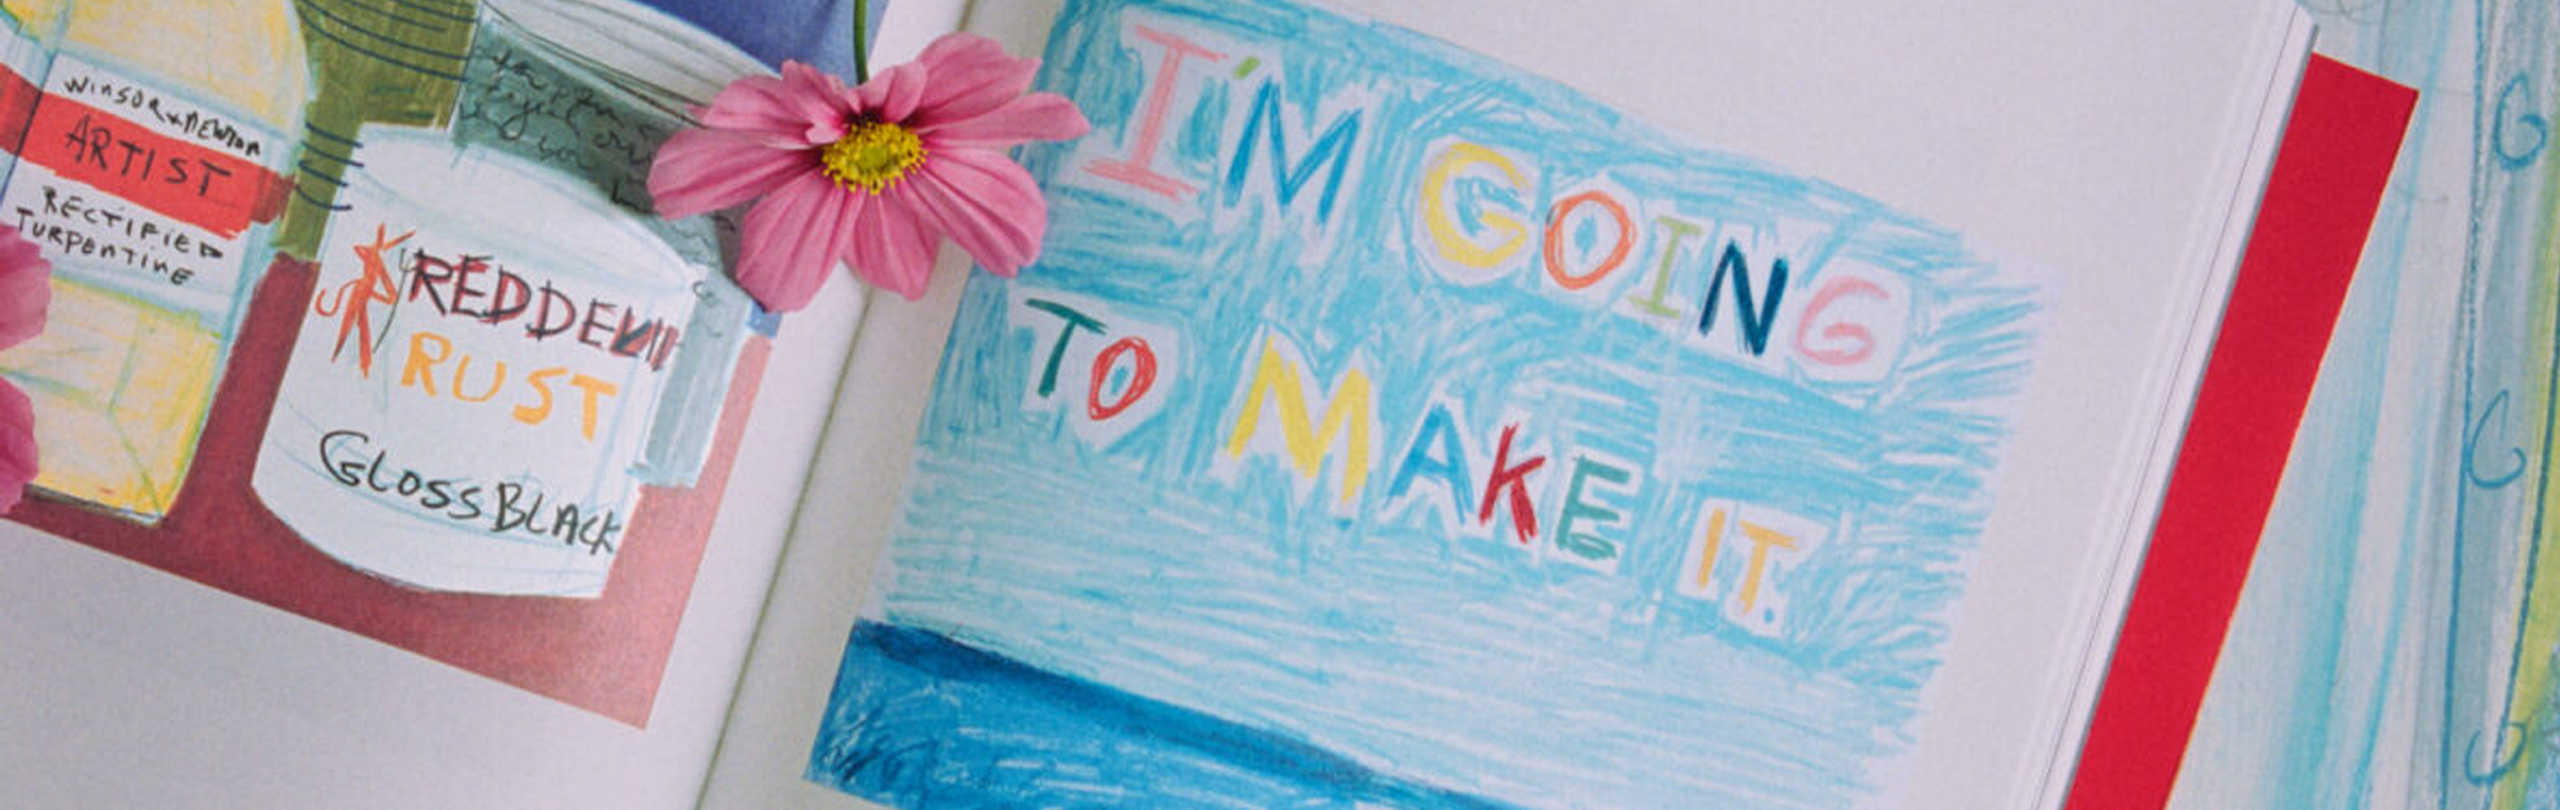 WINSOR & NEWTON
ARTIST
RECTIFIED
TURPENTINE
RED DEVIL
RUST
GLOSS BLACK
I'M GOING
TO MAKE IT.